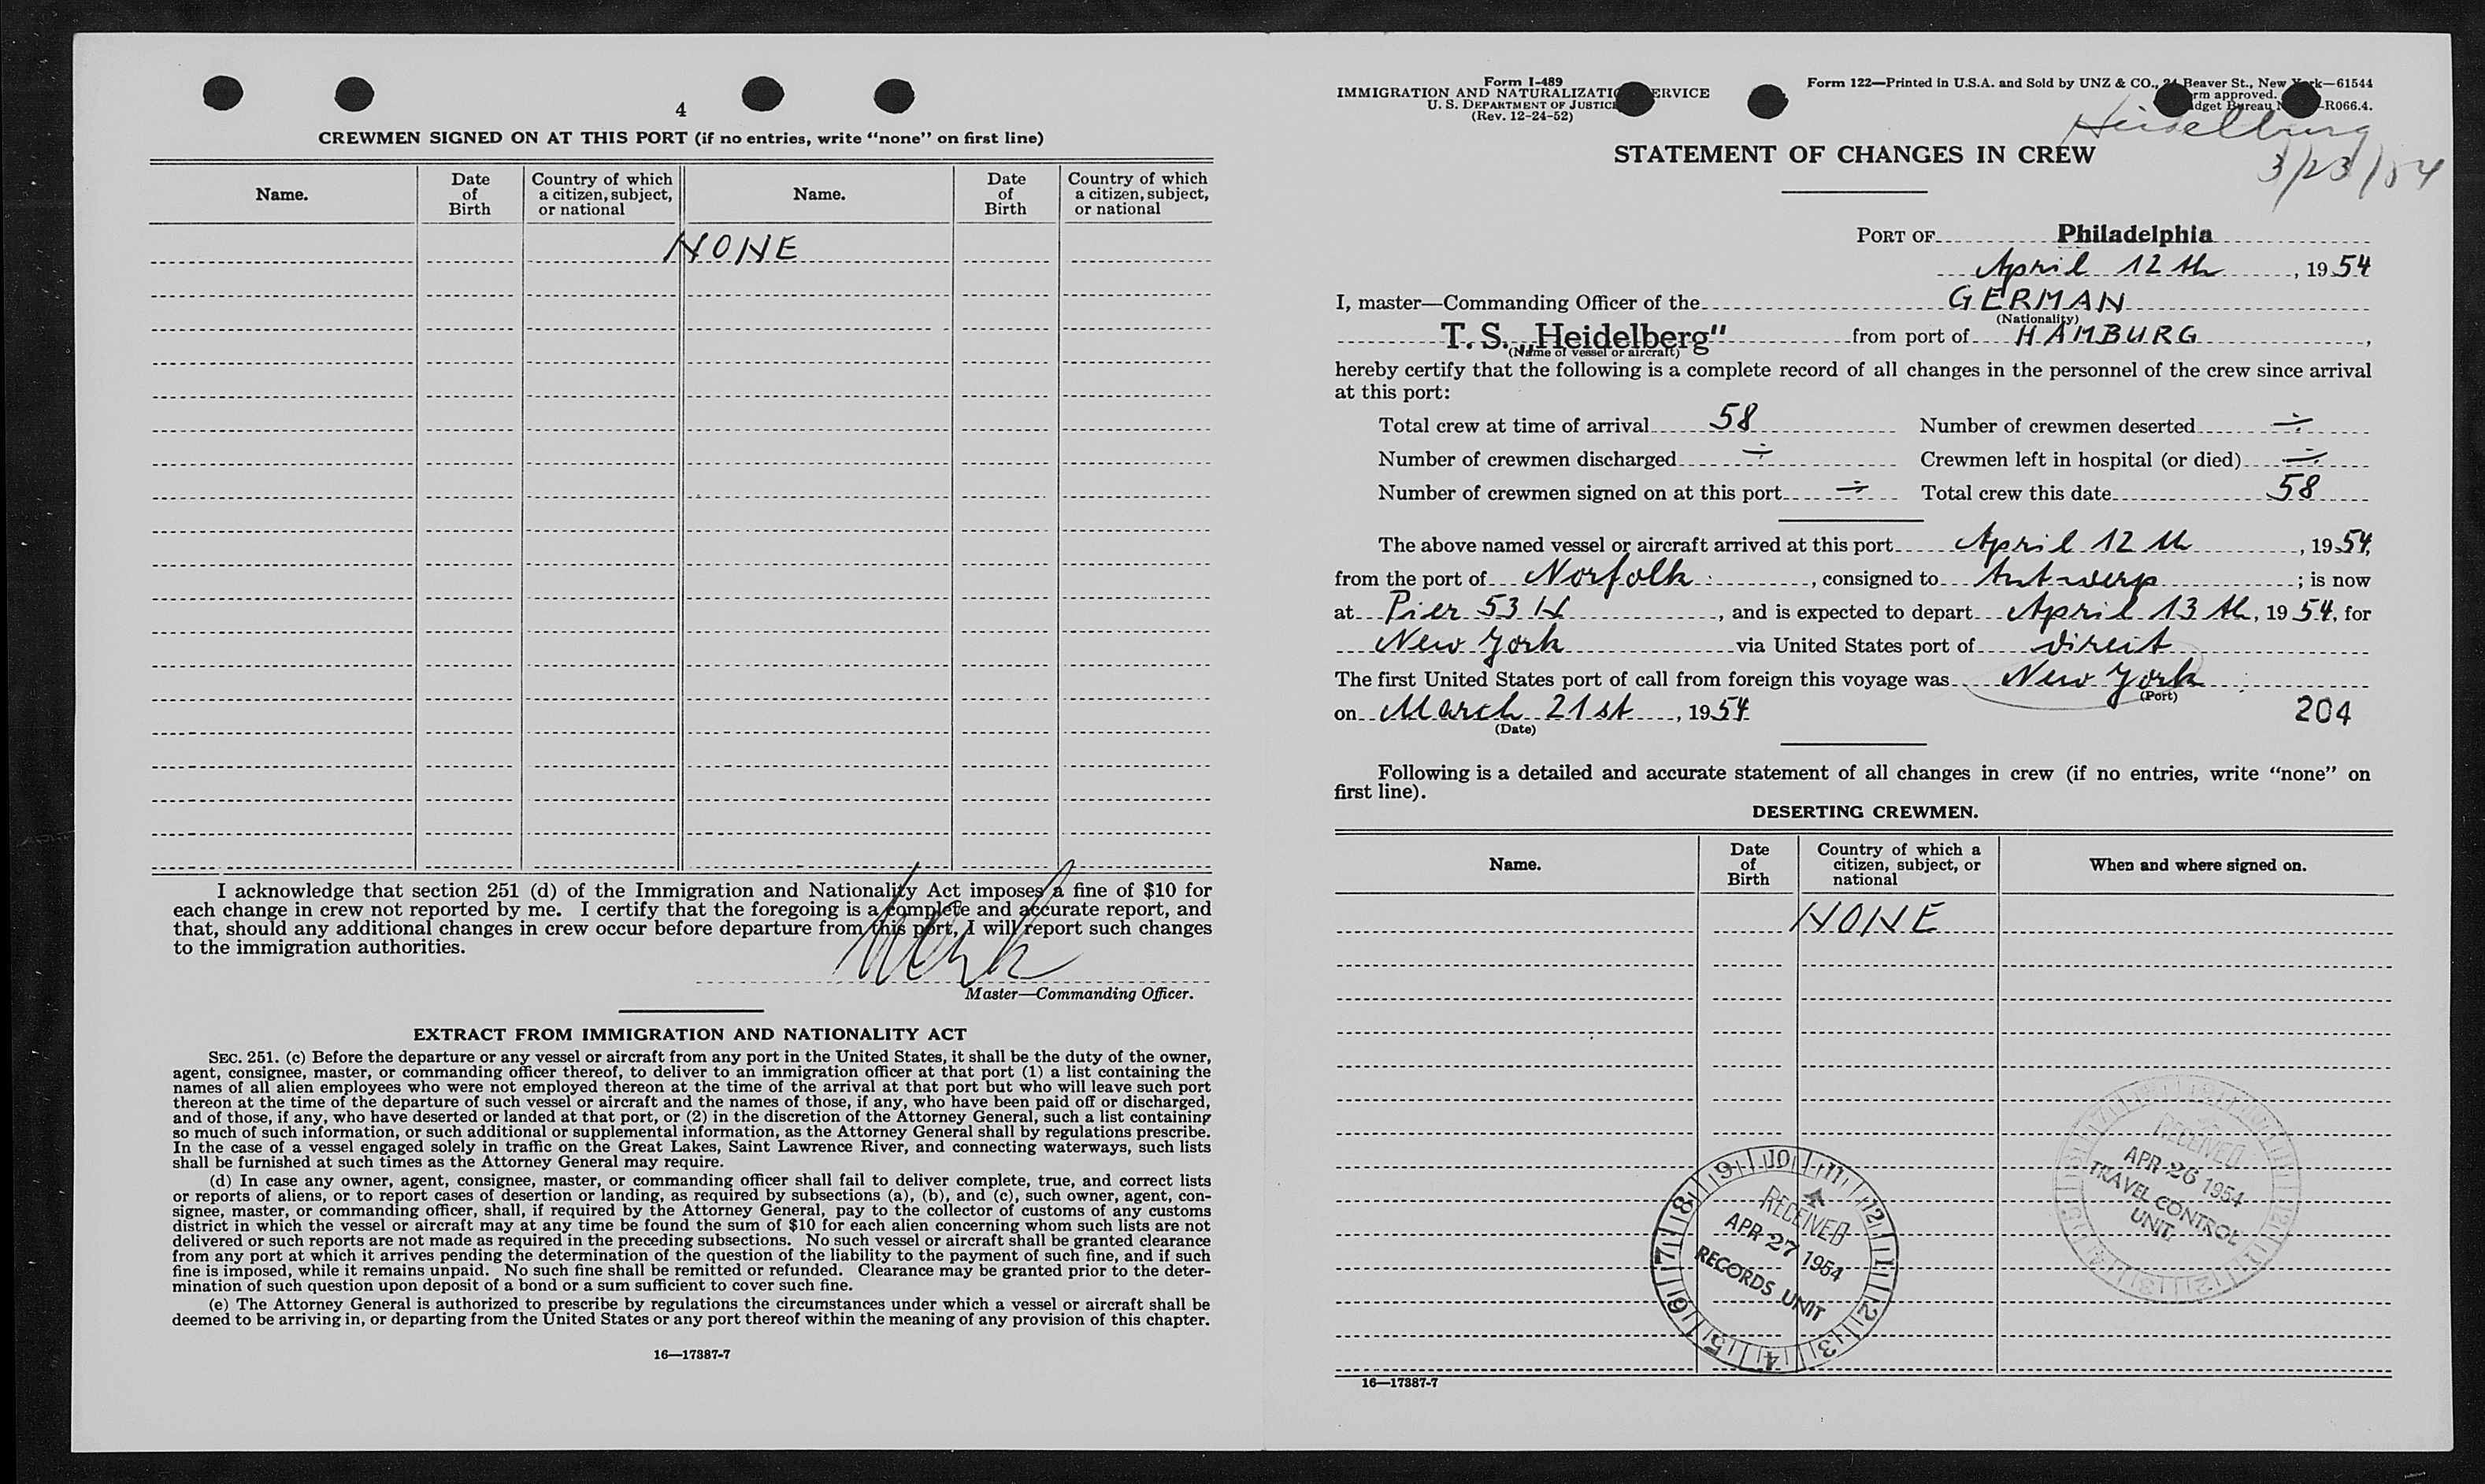 4
CREWMEN SIGNED ON AT THIS PORT (if no entries, write "none" on first line)
Name. Date of Birth Country of which a citizen, subject, or national Name. Date of Birth Country of which a citizen, subject, or national
NONE
I acknowledge that section 251 (d) of the Immigration and Nationality Act imposes a fine of $10 for
each change in crew not reported by me. I certify that the foregoing is a complete and accurate report, and
that, should any additional changes in crew occur before departure from this port, I will report such changes
to the immigration authorities.
Master—Commanding Officer.
EXTRACT FROM IMMIGRATION AND NATIONALITY ACT
SEC. 251. (c) Before the departure or any vessel or aircraft from any port in the United States, it shall be the duty of the owner,
agent, consignee, master, or commanding officer thereof, to deliver to an immigration officer at that port (1) a list containing the
names of all alien employees who were not employed thereon at the time of the arrival at that port but who will leave such port
thereon at the time of the departure of such vessel or aircraft and the names of those, if any, who have been paid off or discharged,
and of those, if any, who have deserted or landed at that port, or (2) in the discretion of the Attorney General, such a list containing
so much of such information, or such additional or supplemental information, as the Attorney General shall by regulations prescribe.
In the case of a vessel engaged solely in traffic on the Great Lakes, Saint Lawrence River, and connecting waterways, such lists
shall be furnished at such times as the Attorney General may require.
(d) In case any owner, agent, consignee, master, or commanding officer shall fail to deliver complete, true, and correct lists
or reports of aliens, or to report cases of desertion or landing, as required by subsections (a), (b), and (c), such owner, agent, con-
signee, master, or commanding officer, shall, if required by the Attorney General, pay to the collector of customs of any customs
district in which the vessel or aircraft may at any time be found the sum of $10 for each alien concerning whom such lists are not
delivered or such reports are not made as required in the preceding subsections. No such vessel or aircraft shall be granted clearance
from any port at which it arrives pending the determination of the question of the liability to the payment of such fine, and if such
fine is imposed, while it remains unpaid. No such fine shall be remitted or refunded. Clearance may be granted prior to the deter-
mination of such question upon deposit of a bond or a sum sufficient to cover such fine.
(e) The Attorney General is authorized to prescribe by regulations the circumstances under which a vessel or aircraft shall be
deemed to be arriving in, or departing from the United States or any port thereof within the meaning of any provision of this chapter.
16—17387-7
Form I-489
IMMIGRATION AND NATURALIZATION SERVICE
U. S. DEPARTMENT OF JUSTICE
(Rev. 12-24-52)
Form 122—Printed in U.S.A. and Sold by UNZ & CO., 24 Beaver St., New York—61544
approved.
Bureau -R066.4.
Heidelburg
3/23/54
STATEMENT OF CHANGES IN CREW
PORT OF Philadelphia
April 12th, 1954
I, master—Commanding Officer of the GERMAN
(Nationality)
T. S. „Heidelberg" from port of HAMBURG,
(Name of vessel or aircraft)
hereby certify that the following is a complete record of all changes in the personnel of the crew since arrival
at this port:
Total crew at time of arrival 58 Number of crewmen deserted ÷
Number of crewmen discharged ÷ Crewmen left in hospital (or died) ÷
Number of crewmen signed on at this port ÷ Total crew this date 58
The above named vessel or aircraft arrived at this port April 12th, 1954,
from the port of Norfolk, consigned to Antwerp; is now
at Pier 53 N, and is expected to depart April 13th, 1954, for
New York via United States port of direct
The first United States port of call from foreign this voyage was New York
(Port)
on March 21st, 1954
(Date)
204
Following is a detailed and accurate statement of all changes in crew (if no entries, write "none" on
first line).
DESERTING CREWMEN.
Name. Date of Birth Country of which a citizen, subject, or national When and where signed on.
NONE
RECEIVED
APR 26 1954
TRAVEL CONTROL
UNIT
9 10 11 12 1 2 3 4 5 6 7 8
RECEIVED
APR 27 1954
RECORDS UNIT
16—17387-7